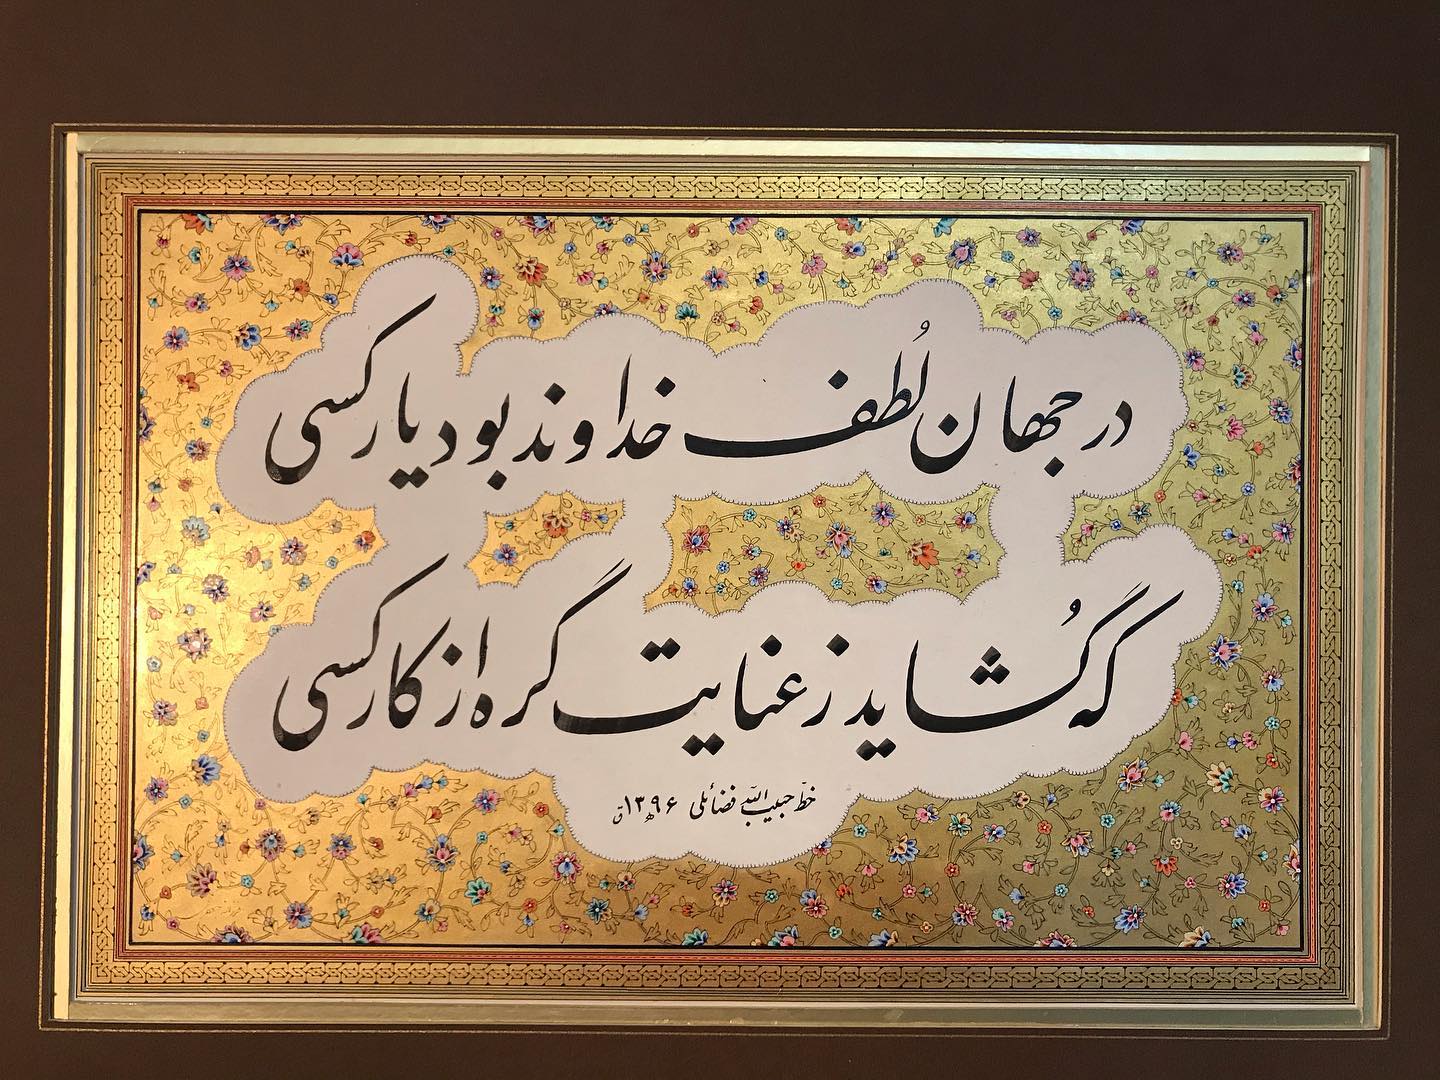 در جهان لُطف خداوند بود یار کسی
که گُشاید ز عنایت گره از کار کسی
خطّ حبیب اللّه فضائلی ۱۳۹۶ ه ق